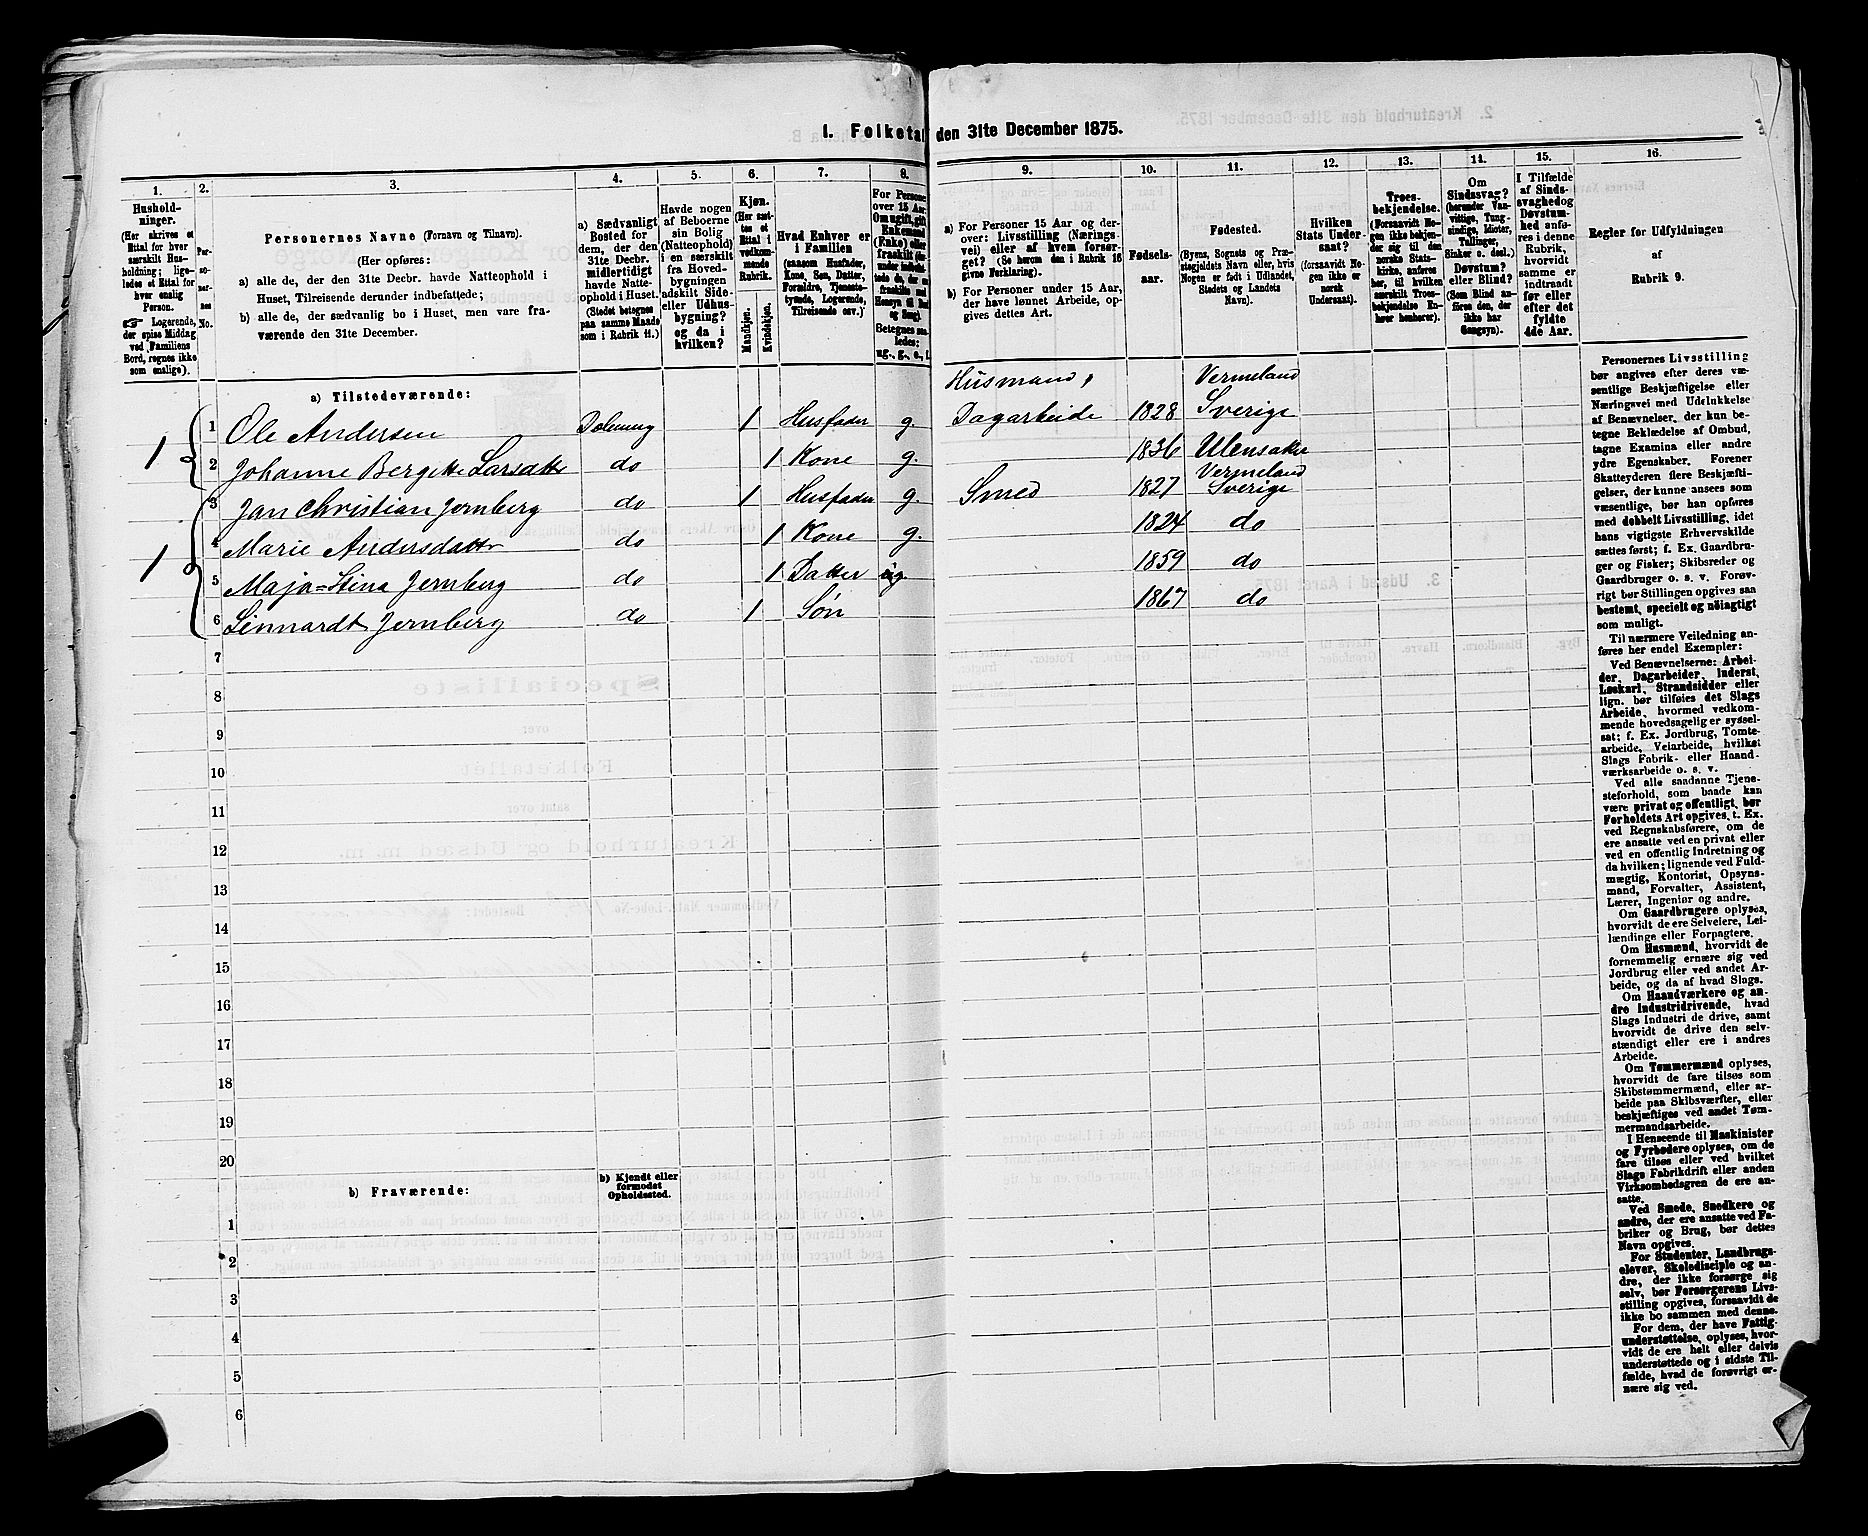 1. Folketal den 31te December 1875.
1. 2. 3. 4. 5. 6. 7. 8. 9. 10. 11. 12. 13. 14. 15. 16.
Hushold-
ninger.
(Her skrives et
Ettal for hver
særskilt Hus-
holdning; lige-
ledes et Ettal for
hver enslig
Person.
☞ Logerende,
der spise Middag
ved Familiens
Bord, regnes ikke
som enslige).
Per-
so-
ner-
nes
No.
Personernes Navne (Fornavn og Tilnavn).
(Her opføres:
a) alle de, der den 31te Decbr. havde Natteophold i
Huset, Tilreisende derunder indbefattede;
b) alle de, der sædvanlig bo i Huset, men vare fra-
værende den 31te December.
a) Sædvanligt
Bosted for
dem, der den
31te Decbr.
midlertidigt
havde Natte-
ophold i Huset.
(Stedet betegnes
paa samme Maade
som i Rubrik 11.)
Havde nogen
af Beboerne
sin Bolig
(Natteophold)
i en særskilt
fra Hoved-
bygningen
adskilt Side-
eller Udhus-
bygning?
og da i
hvilken?
Kjøn.
(Her sæt-
tes et
Ettal i
vedkom-
mende
Rubrik.
Mandkjøn.
Kvindekjøn.
Hvad Enhver er
i Familien
(saasom Husfader,
Kone, Søn, Datter,
Forældre, Tjeneste-
tyende, Logerende,
Tilreisende osv.)
For Personer
over 15 Aar
Om ugift, gift,
Enkemand
(Enke) eller
fraskilt
Betegnes saa-
ledes:
ug., g., e., f.
a) For Personer 15 Aar og der-
over: Livsstilling (Nærings-
vei) eller af hvem forsør-
get? (Se herom den i Rubrik 16
givne Forklaring).
b) For Personer under 15 Aar,
der have lønnet Arbeide, op-
gives dettes Art.
Fødsels-
aar.
Fødested.
(Byens, Sognets og Præ-
stegjeldets Navn eller, hvis
Nogen er født i Udlandet,
Stedets og Landets
Navn).
Hvilken
Stats Under-
saat?
(forsaavidt No-
gen ikke er
norsk
Undersaat).
Troes-
bekjendelse.
(Forsaavidt No-
gen ikke bekjen-
der sig til den
norske Stats-
kirke, anføres
her, til hvilken
særskilt Troes-
bekjendelse En-
hver henhører).
Om
Sindssvag?
(herunder Van-
vittige, Tung-
sindige, Idioter,
Tullinger,
Sinker o. desl.)
Døvstum?
eller Blind?
(Som Blind an-
føres den, der
ikke har
Gangsyn).
I Tilfælde
af Sinds-
svaghed og
Døvstum-
hed anfø-
res i denne
Rubrik,
hvorvidt
samme er
indtraadt
før eller
efter det
fyldte
4de Aar.
Regler for Udfyldningen
af
Rubrik 9.
a) Tilstedeværende:
Husmand, Vermeland
1 1 Ole Andersen 1 Husfader g. Dagarbeide 1828 Sverige
2 Johanne Bergitte Larsdatter do 1 Kone g. 1836 Ulensaker
Vermeland
1 3 Jan Christian Jernberg do 1 Husfader g. Smed 1827 Sverige
4 Marie Andersdatter do 1 Kone g. 1824 do
5 Maja=Stina Jernberg do 1 Datter ug 1859 do
6 Linnardt Jernberg do 1 Søn 1867 do
7
8
9
10
11
12
13
14
15
16
17
18
19
20
b) Fraværende:
b) Kjendt eller
formodet
Opholdssted.
1
2
3
4
5
6
Personernes Livsstilling
bør angives efter deres væ-
sentlige Beskjæftigelse eller
Næringsvei med Udelukkelse
af Benævnelser, der kun be-
tegne Beklædelse af Ombud,
tagne Examina eller andre
ydre Egenskaber. Forener
Skatteyderen flere Beskjæfti-
gelser, der kunne ansees som
væsentlige, bør han opføres
med dobbelt Livsstilling, idet
hans vigtigste Erhvervskilde
sættes først; f. Ex. Gaardbru-
ger og Fisker; Skibsreder og
Gaardbruger o. s. v. Forøv-
rigt bør Stillingen opgives saa
bestemt, specielt og nøiagtigt
som muligt.
Til nærmere Veiledning an-
føres her endel Exempler:
Ved Benævnelserne: Arbei-
der, Dagarbeider, Inderst,
Løskarl, Strandsidder eller
lign. bør tilføies det Slags
Arbeide, hvormed vedkom-
mende hovedsagelig er syssel-
sat; f. Ex. Jordbrug, Tomte-
arbeide, Veiarbeide, hvilket
Slags Fabrik- eller Haand-
værksarbeide o. s. v.
Ved alle saadanne Tjene-
steforhold, som baade kan
være privat og offentligt, bør
Forholdets Art opgives, t. Ex.
ved Regnskabsførere, om de
ere ansatte ved en privat eller
ved en offentlig Indretning og
da hvilken; lignende ved Fuld-
mægtig, Kontorist, Opsyns-
mand, Forvalter, Assistent,
Lærer, Ingeniør og andre.
Om Gaardbrugere oplyses,
hvorvidt de ere Selveiere, Lei-
lændinge eller Forpagtere.
Om Husmænd, hvorvidt de
fornemmelig ernære sig ved
Jordbrug eller ved andet Ar-
beide, og da af hvad Slags.
Om Haandværkere og an-
dre Industridrivende, hvad
Slags Industri de drive, samt
hvorvidt de drive den selv-
stændigt eller ere i andres
Arbeide.
Om Tømmermænd oplyses,
hvorvidt de fare tilsøs som
Skibstømmermænd, eller ar-
beide paa Skibsværfter, eller
beskjæftiges ved andet Tøm-
mermandsarbeide.
I Henseende til Maskinister
og Fyrbødere oplyses, om de
fare tilsøs eller ved hvilket
Slags Fabrikdrift eller anden
Virksomhedsgren de ere an-
satte.
Ved Smede, Snedkere og
andre, der ere ansatte ved Fa-
briker og Brug, bør dettes
Navn opgives.
For Studenter, Landbrugs-
elever, Skoledisciple og an-
dre, der ikke forsørge sig
selv, bør Forsørgerens Livs-
stilling opgives, forsaavidt de
ikke bo sammen med denne.
For dem, der have Fattig-
understøttelse, oplyses, hvor-
vidt de ere helt eller delvis
understøttede og i sidste Til-
fælde, hvad de forøvrigt er-
nære sig ved.